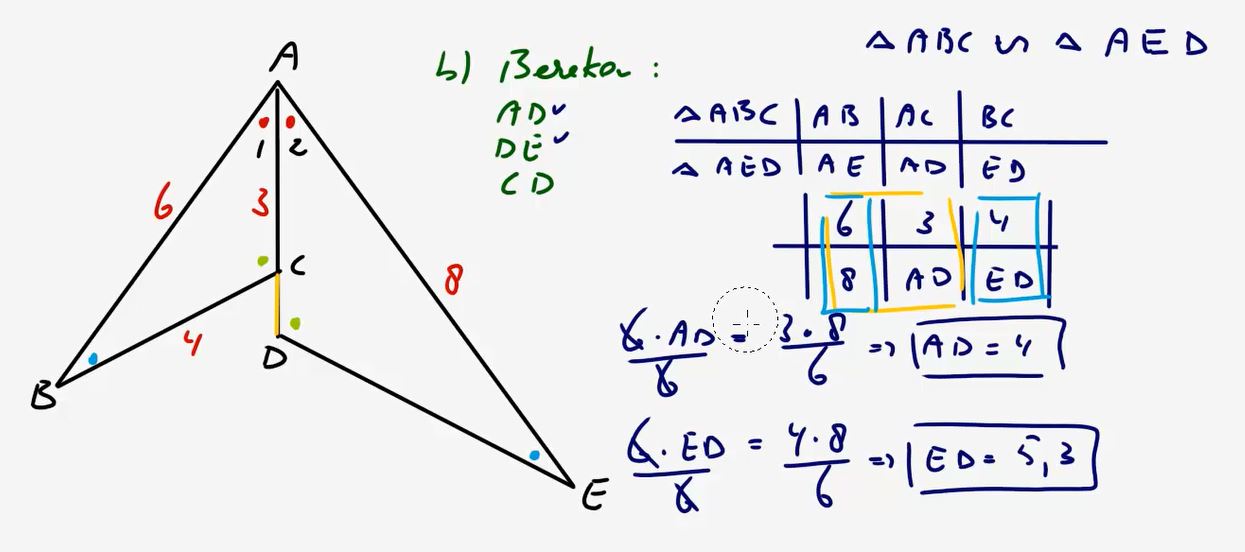 △ABC ∽ △AED
b) Bereken :
AD✓
DE✓
CD
△ABC | AB | AC | BC
△AED | AE | AD | ED
6 | 3 | 4
8 | AD | ED
6·AD/6 = 3·8/6 => AD = 4
6·ED/6 = 4·8/6 => ED = 5,3
A
1 2
6
3
C
8
4
D
B
E